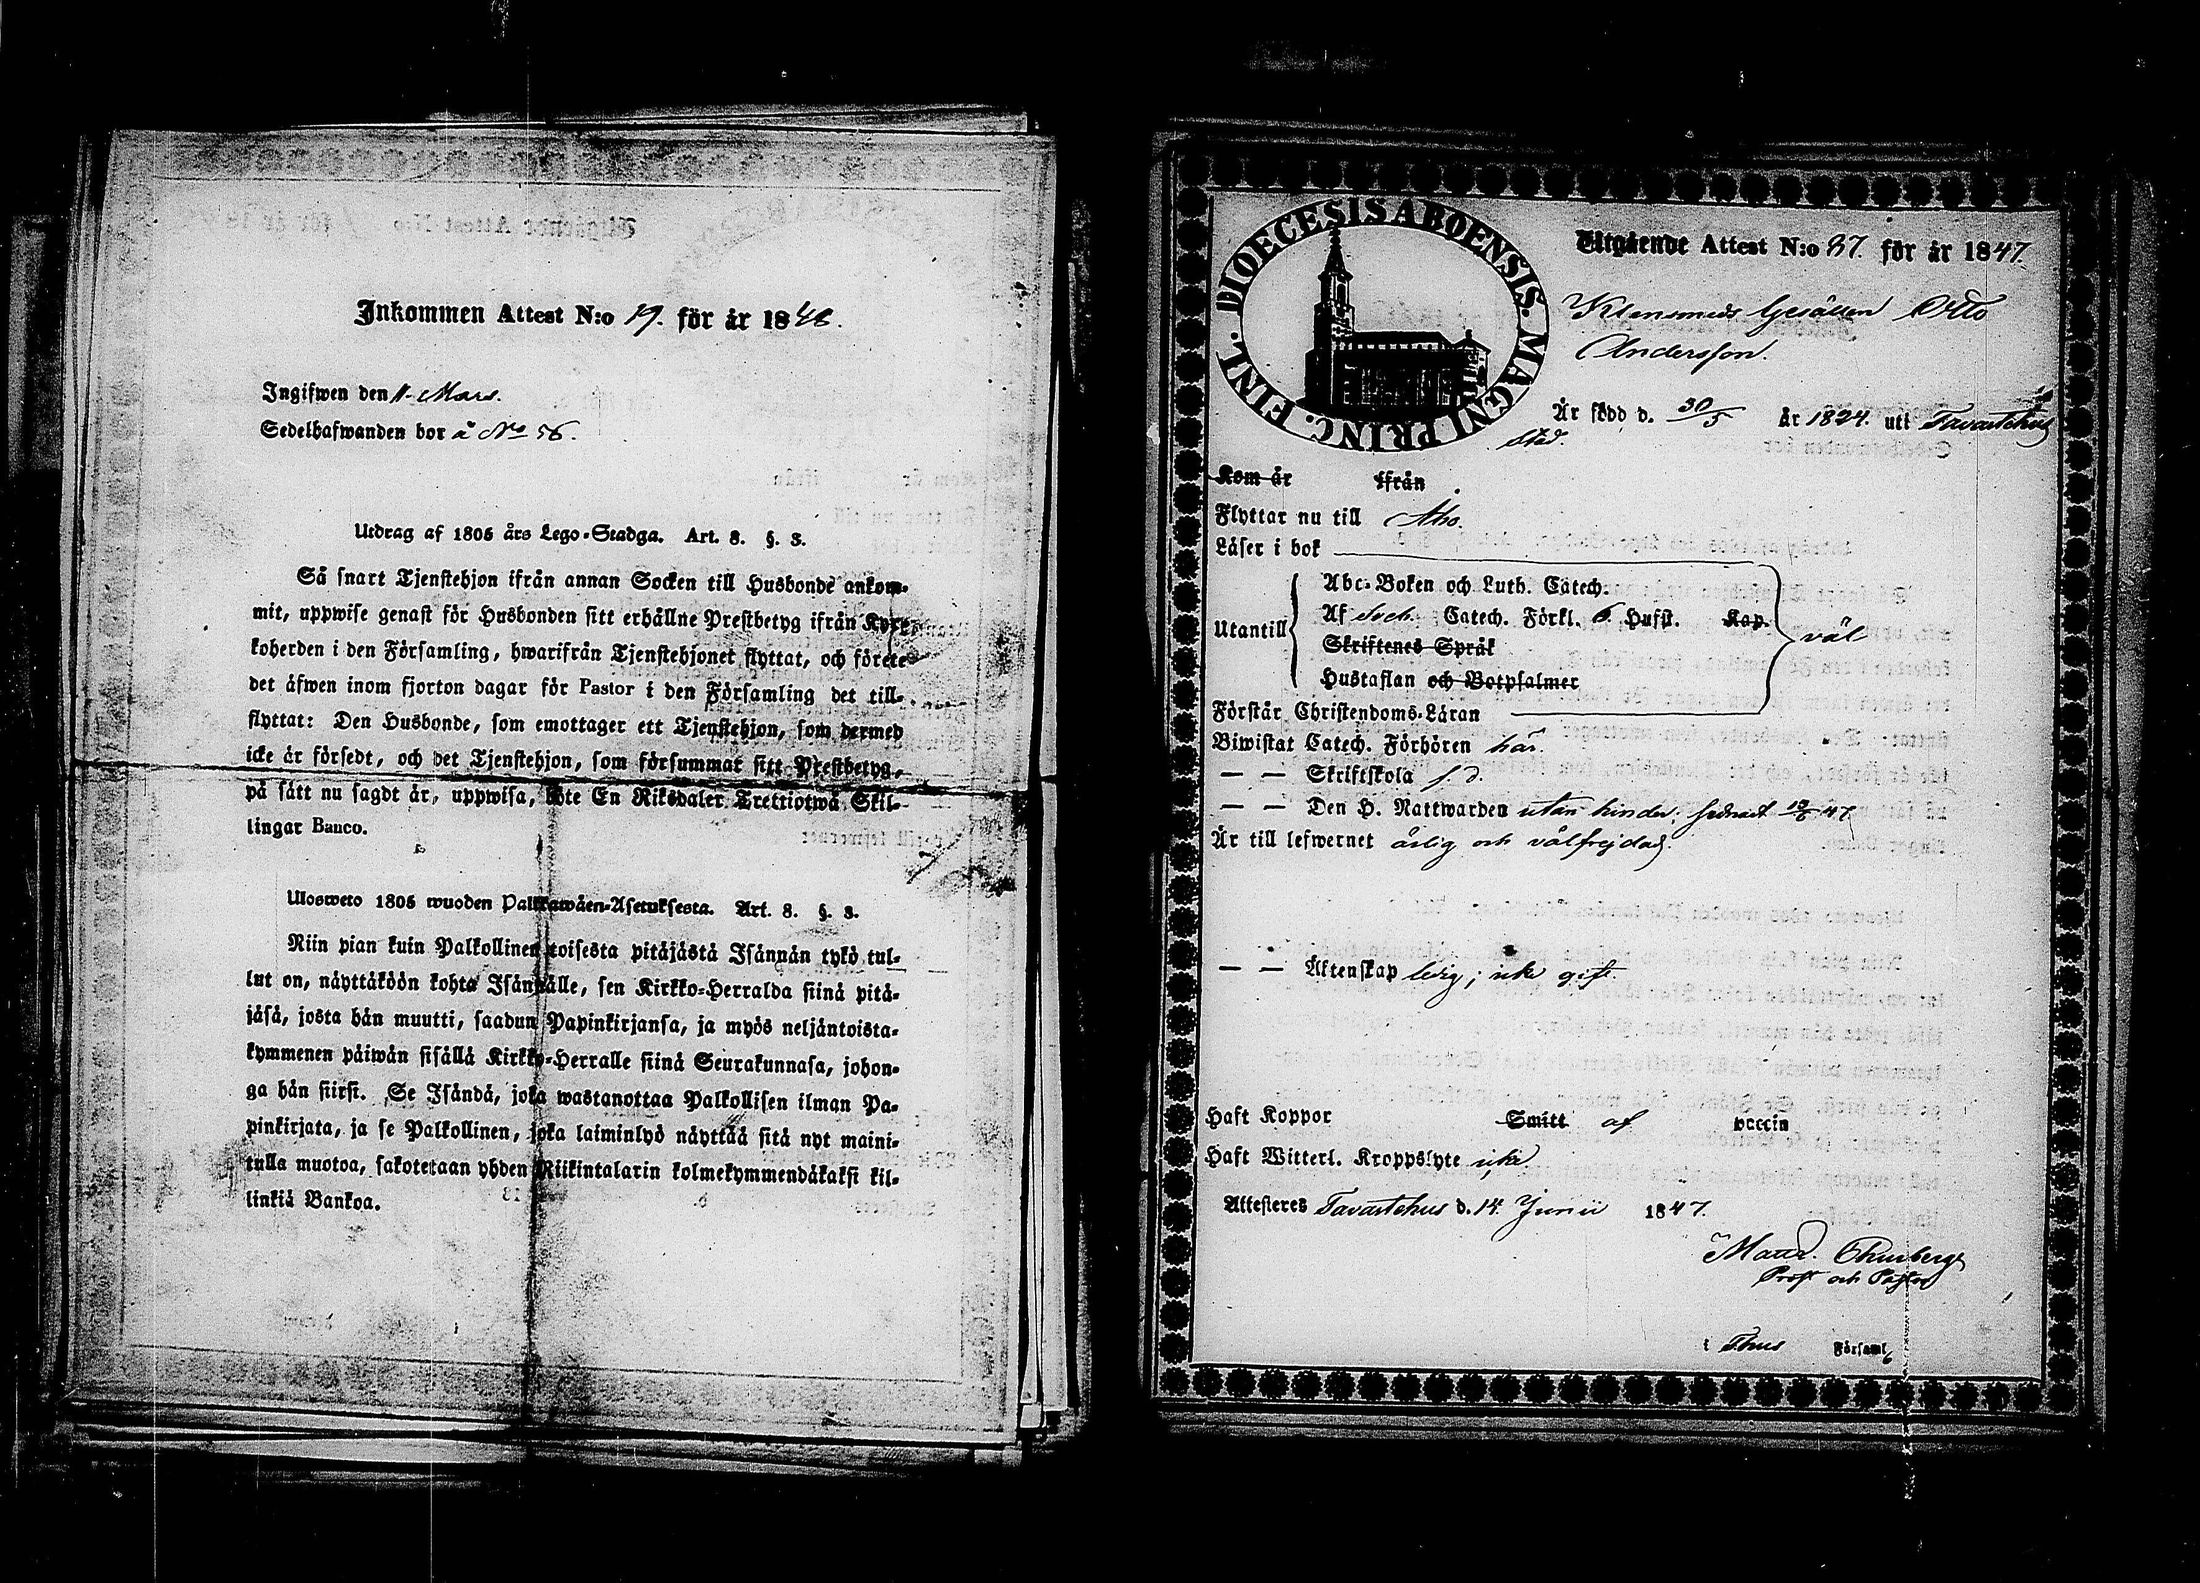 Inkommen Attest N:o 19. för år 1848.
Ingifwen den 11 Mars.
Sedelhafwanden bor å No 56.
Utdrag af 1805 års Lego-Stadga. Art. 8. §. 3.
Så snart Tjenstehjon ifrån annan Socken till Husbonde ankom-
mit, uppwise genast för Husbonden sitt erhållne Prestbetyg ifrån Kyr-
koherden i den Församling, hwarifrån Tjenstehjonet flyttat, och förete
det äfwen inom fjorton dagar för Pastor i den Församling det till-
flyttat: Den Husbonde, som emottager ett Tjenstehjon, som dermed
icke är försedt, och det Tjenstehjon, som försummat sitt Prestbetyg,
på sätt nu sagdt är, uppwisa, böte En Riksdaler Trettiotwå Skil-
lingar Banco.
Ulosweto 1805 wuoden Palkkawäen-Asetuksesta. Art. 8. §. 3.
Niin pian kuin Palkollinen toisesta pitäjästä Isännän tykö tul-
lut on, näyttäköön kohta Isännälle, sen Kirkko-Herralda siinä pitä-
jäsä, josta hän muutti, saadun Papinkirjansa, ja myös neljäntoista-
kymmenen päiwän sisällä Kirkko-Herralle siinä Seurakunnasa, johon-
ga hän siirsi. Se Isändä, joka wastanottaa Palkollisen ilman Pa-
pinkirjata, ja se Palkollinen, joka laiminlyö näyttää sitä nyt maini-
tulla muotoa, sakotetaan yhden Riikintalarin kolmekymmendäkaksi kil-
linkiä Bankoa.
DIOECESIS ABOENSIS. MAGNI PRINC. FINL.
Utgående Attest N:o 87. för år 1847.
Klensmeds Gesällen Otto
Andersson.
Är född d. 30/5 år 1824. uti Tavastehus
Stad.
Kom år ifrån
Flyttar nu till Åbo.
Läser i bok
Abc-Boken och Luth. Catech.
Utantill Af Sveb. Catech. Förkl. 6. Hufst. Kap. väl
Skriftenes Språk
Hustaflan och Botpsalmer
Förstår Christendoms-Läran
Biwistat Catech. Förhören här.
— — Skriftskola s. d.
— — Den H. Nattwarden utan hinder; sednast 13/6 47
Är till lefwernet ärlig och välfrejdad.
— — Äktenskap ledig; icke gift.
Haft Koppor Smitt af vaccin
Haft Witterl. Kroppslyte icke.
Attesteres Tavastehus d. 14 Junii 1847.
Thunberg
Prost och Pastor
i Thus Församl.